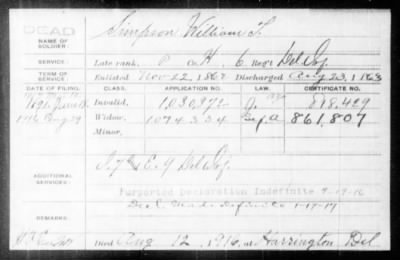 DEAD
NAME OF SOLDIER:
Simpson William T.
SERVICE:
Late rank, P Co. H, 6 Reg't Del Inf.
TERM OF SERVICE:
Enlisted Nov 22, 1862 Discharged Aug 23, 1863
DATE OF FILING. CLASS. APPLICATION NO. LAW. CERTIFICATE NO.
Invalid, 1,030,372 898,429
1916 Aug 29 Widow, 1074334 861,807
Minor,
ADDITIONAL SERVICES:
Del Inf.
Purported Declaration Indefinite 9-19-16
REMARKS:
Decl. Made Definite 1-17-17
Died Aug 12, 1916, at Harrington Del